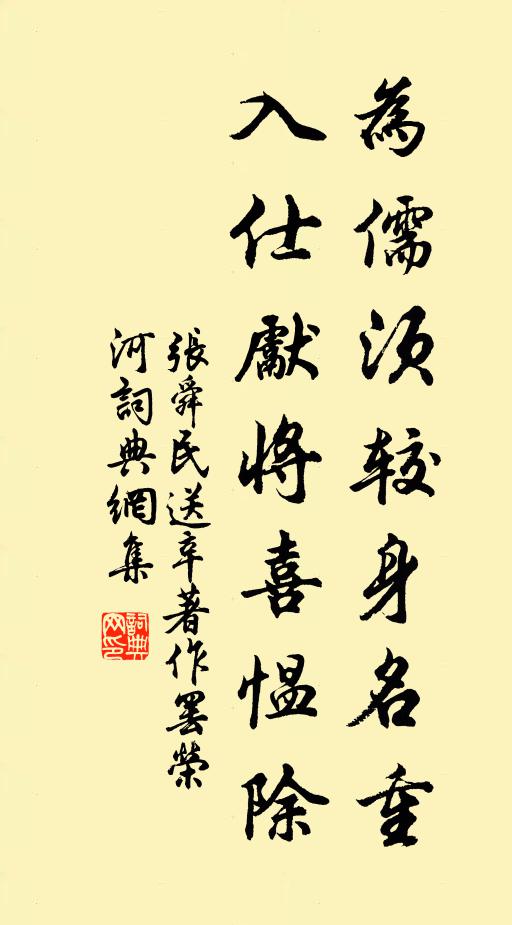 為儒須較身名重
入仕獻將喜愠除
張舜民送辛著作罢榮
河詞典網集
詞典网印